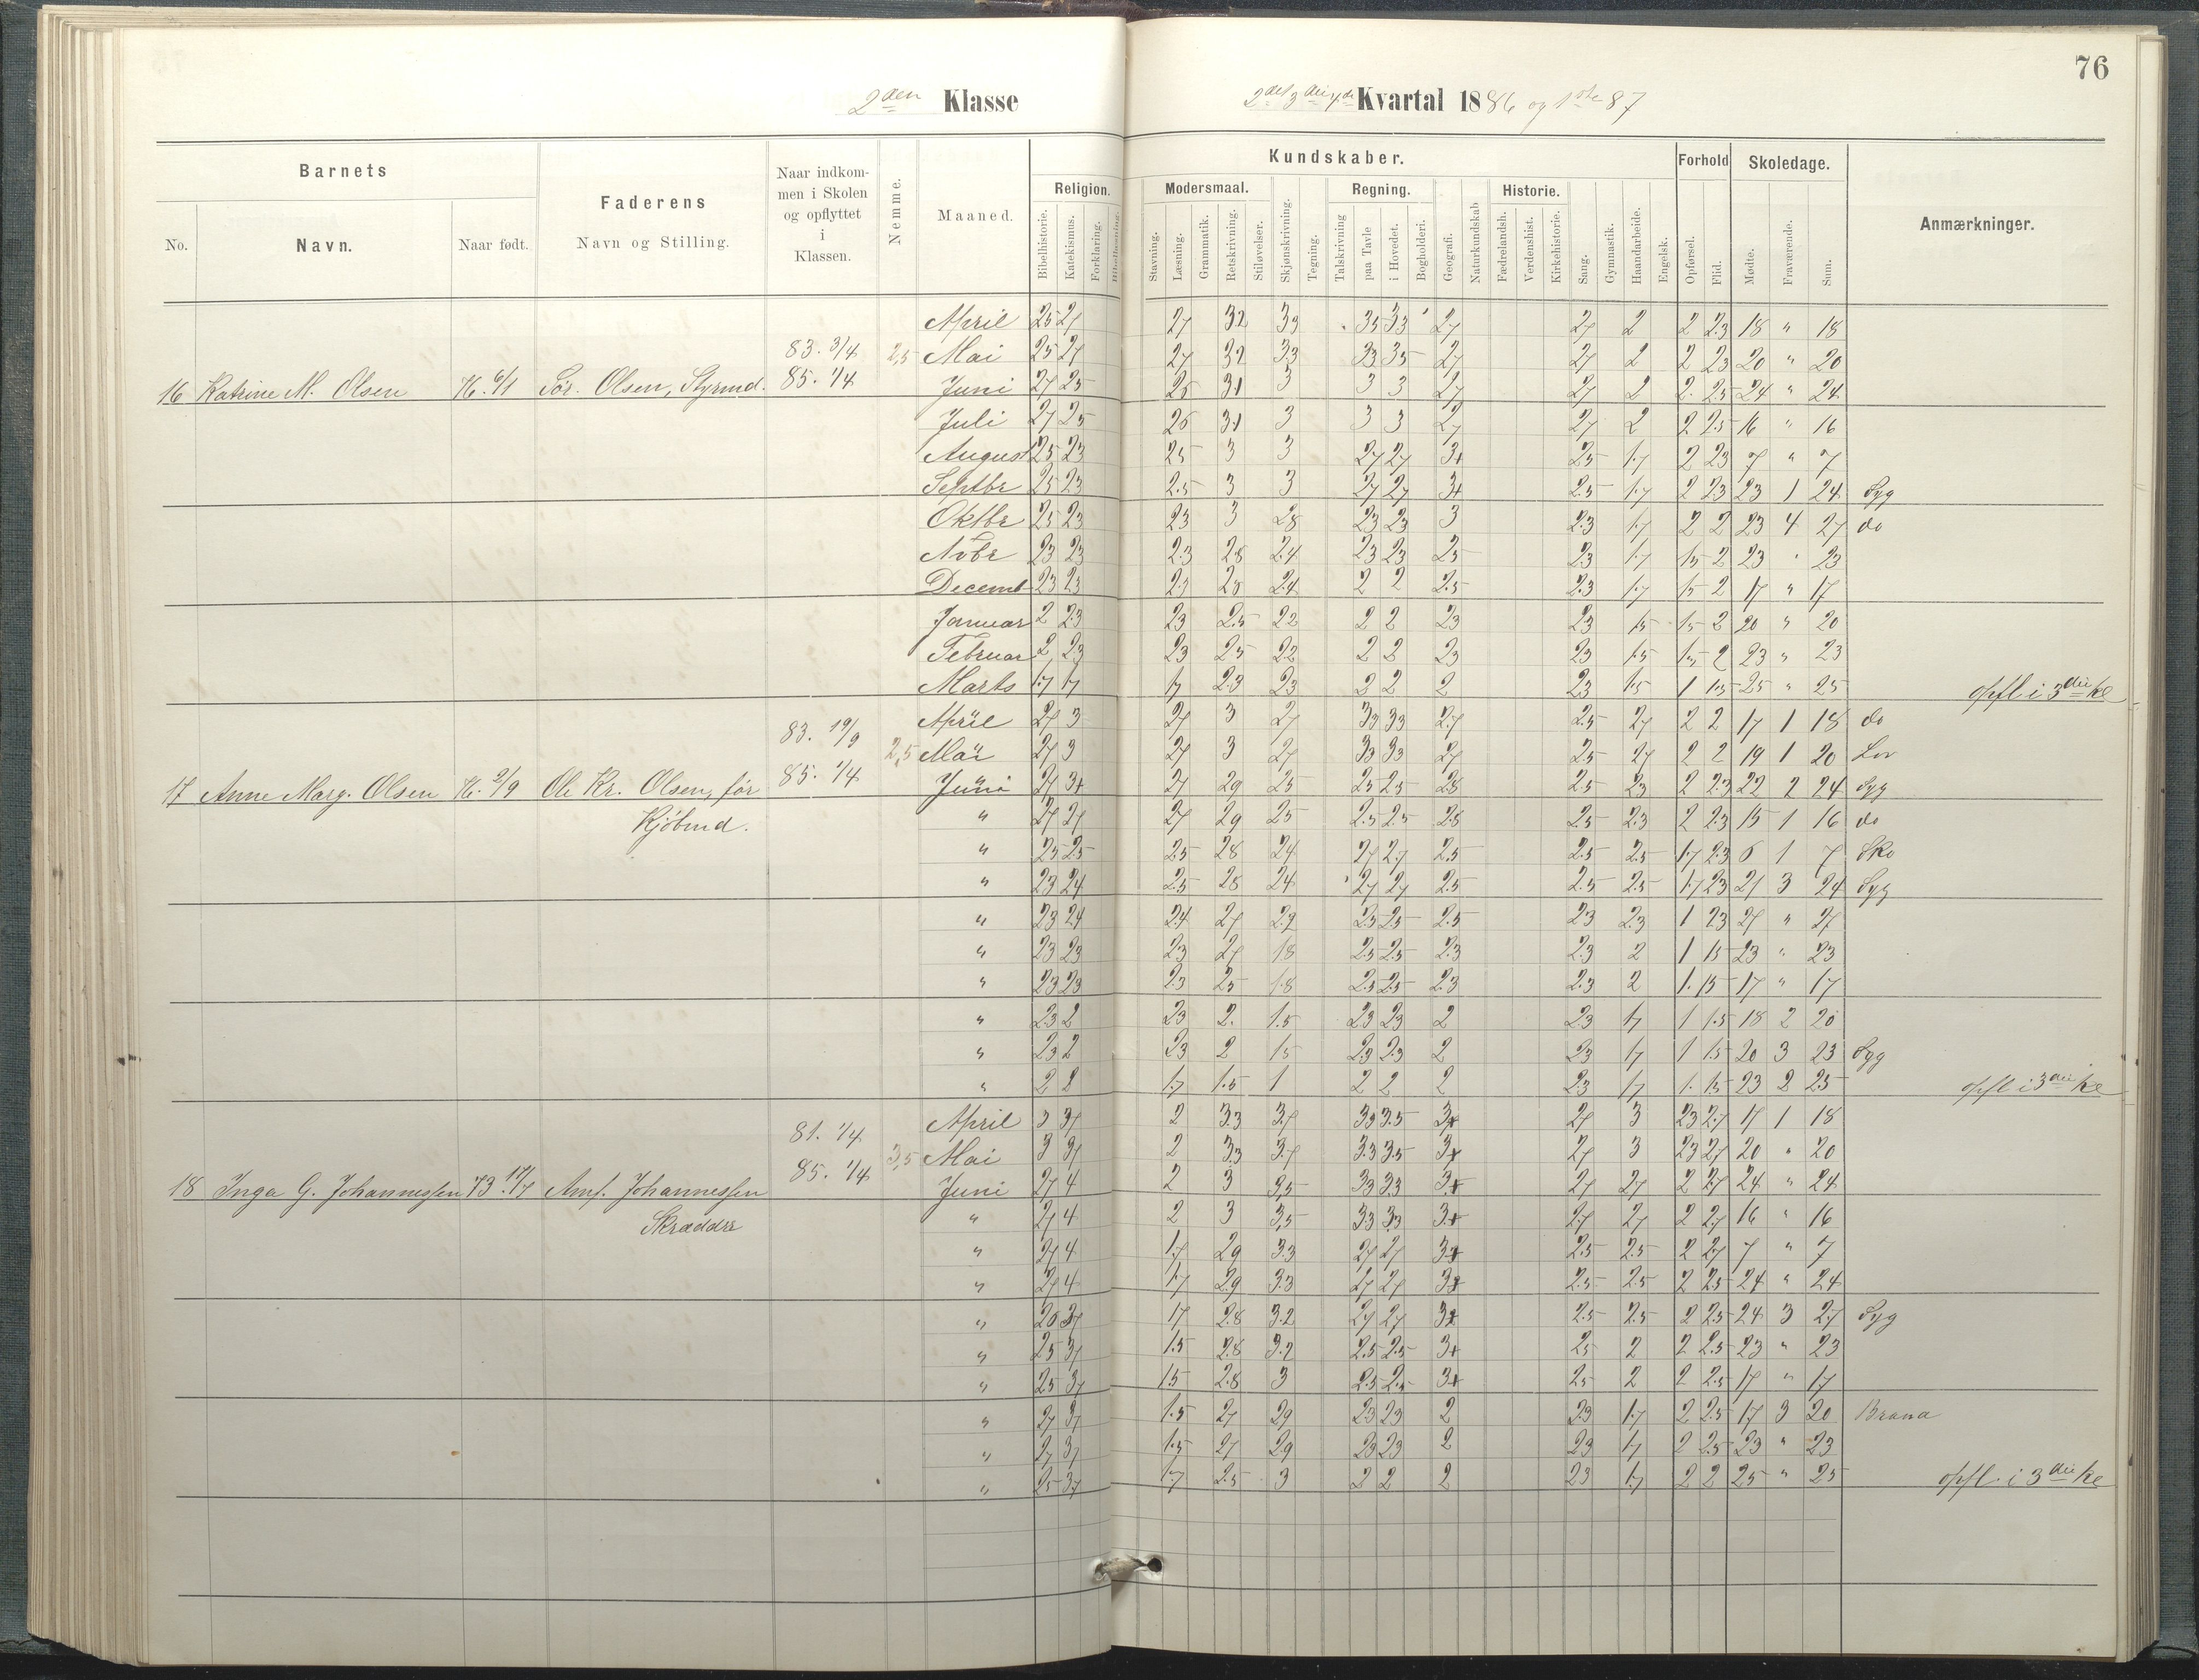 76
2den Klasse 2det 3die 4de Kvartal 1886 og 1ste 87
Barnets Faderens Naar indkommen i Skolen og opflyttet i Klassen. Nemme. Maaned. Kundskaber. Forhold Skoledage. Anmærkninger.
Religion. Modersmaal. Regning. Historie.
No. Navn. Naar født. Navn og Stilling. Bibelhistorie. Katekismus. Forklaring. Bibellæsning. Stavning. Læsning. Grammatik. Retskrivning. Stiløvelser. Skjønskrivning. Tegning. Talskrivning paa Tavle i Hovedet. Bogholderi. Geografi. Naturkundskab Fædrelandsh. Verdenshist. Kirkehistorie. Sang. Gymnastik. Haandarbeide. Engelsk. Opførsel. Flid. Mødte. Fraværende. Sum.
April 25 27 27 32 33 35 33 27 27 2 2 23 18 " 18
83. 3/4 2,5 Mai 25 27 27 32 33 33 35 27 27 2 2 23 20 " 20
16 Katrine M. Olsen 76. 6/1 Sør. Olsen, Styrmd. 85. 1/4 Juni 27 25 26 31 3 3 3 27 27 2 2 25 24 " 24
Juli 27 25 26 31 3 3 3 27 27 2 2 25 16 " 16
August 25 23 25 3 3 27 27 3+ 25 1.7 2 23 7 " 7
Septbr 25 23 2.5 3 3 27 27 3+ 25 1.7 2 23 23 1 24 Syg
Oktbr 25 23 23 3 28 23 23 3 23 17 2 2 23 4 27 do
Nvbr 23 23 2.3 28 24 23 23 25 23 1.7 15 2 23 " 23
Decemb 23 23 23 28 24 2 2 2.5 23 1.7 15 2 17 " 17
Januar 2 23 23 2.5 22 2 2 23 23 15 15 2 20 " 20
Februar 2 23 23 25 22 2 2 23 23 15 15 2 23 " 23
Marts 17 17 17 23 23 2 2 2 23 15 1 15 25 " 25 opfl i 3die kl
83. 19/9 April 27 3 27 3 27 33 33 27 2.5 27 2 2 17 1 18 do
2,5 Mai 27 3 27 3 27 33 33 27 2.5 27 2 2 19 1 20 Lov
17 Anne Marg. Olsen 76. 2/9 Ole Kr. Olsen, før 85. 1/4 Juni 27 3+ 27 29 25 25 25 28 2.5 23 2 2.3 22 2 24 Syg
Kjøbmd. " 27 27 27 29 25 2.5 2.5 28 2.5 2.3 2 2.3 15 1 16 do
" 25 25 2.5 28 24 27 2.7 2.5 2.5 2.5 1.7 2.3 6 1 7 Sko
" 23 24 2.5 28 24 27 27 2.5 2.5 2.5 1.7 23 21 3 24 Syg
" 23 24 24 27 22 25 25 2.5 23 2.3 1 23 27 " 27
" 23 23 23 27 18 2.5 2.5 2.3 2.3 2 1 15 23 " 23
" 23 23 23 25 1.8 2.5 2.5 2.3 2.3 2 1. 15 17 " 17
" 23 2 23 2. 1.5 23 23 2 2.3 17 1 1.5 18 2 20
" 23 2 23 2 15 23 23 2 23 17 1 15 20 3 23 Syg
" 2 2 1.7 1.5 1 2 2 2 23 17 1. 15 23 2 25 opfl i 3die kl
81. 1/4 April 3 37 2 3.3 3.7 33 3.5 3+ 27 3 23 27 17 1 18
3,5 Mai 3 37 2 33 3.7 33 35 3+ 27 3 23 27 20 " 20
18 Inga G. Johannessen 73. 17/7 Amf. Johannessen 85. 1/4 Juni 27 4 2 3 3,5 33 33 3+ 27 27 2 27 24 " 24
Skrædder " 27 4 2 3 3,5 33 33 3+ 27 27 2 27 16 " 16
" 27 4 1.7 29 33 27 27 3+ 2.5 2.5 2 27 7 " 7
" 27 4 17 29 33 27 27 3+ 2.5 2.5 2 25 24 " 24
" 26 37 17 2.8 3.2 27 27 3+ 2.5 2.5 2 25 24 3 27 Syg
" 25 37 15 2.8 3.2 2.5 2.5 3+ 25 2 2 2.5 23 " 23
" 25 37 15 2.8 3 2.5 2.5 3+ 25 2 2 2.5 17 " 17
" 27 37 1.5 27 29 23 23 2 23 1.7 2 25 17 3 20
" 27 37 1.5 27 29 23 23 2 23 17 2 25 23 " 23
" 25 37 17 2.5 3 2 2 2 23 17 2 2 25 " 25 opfl. i 3die kl